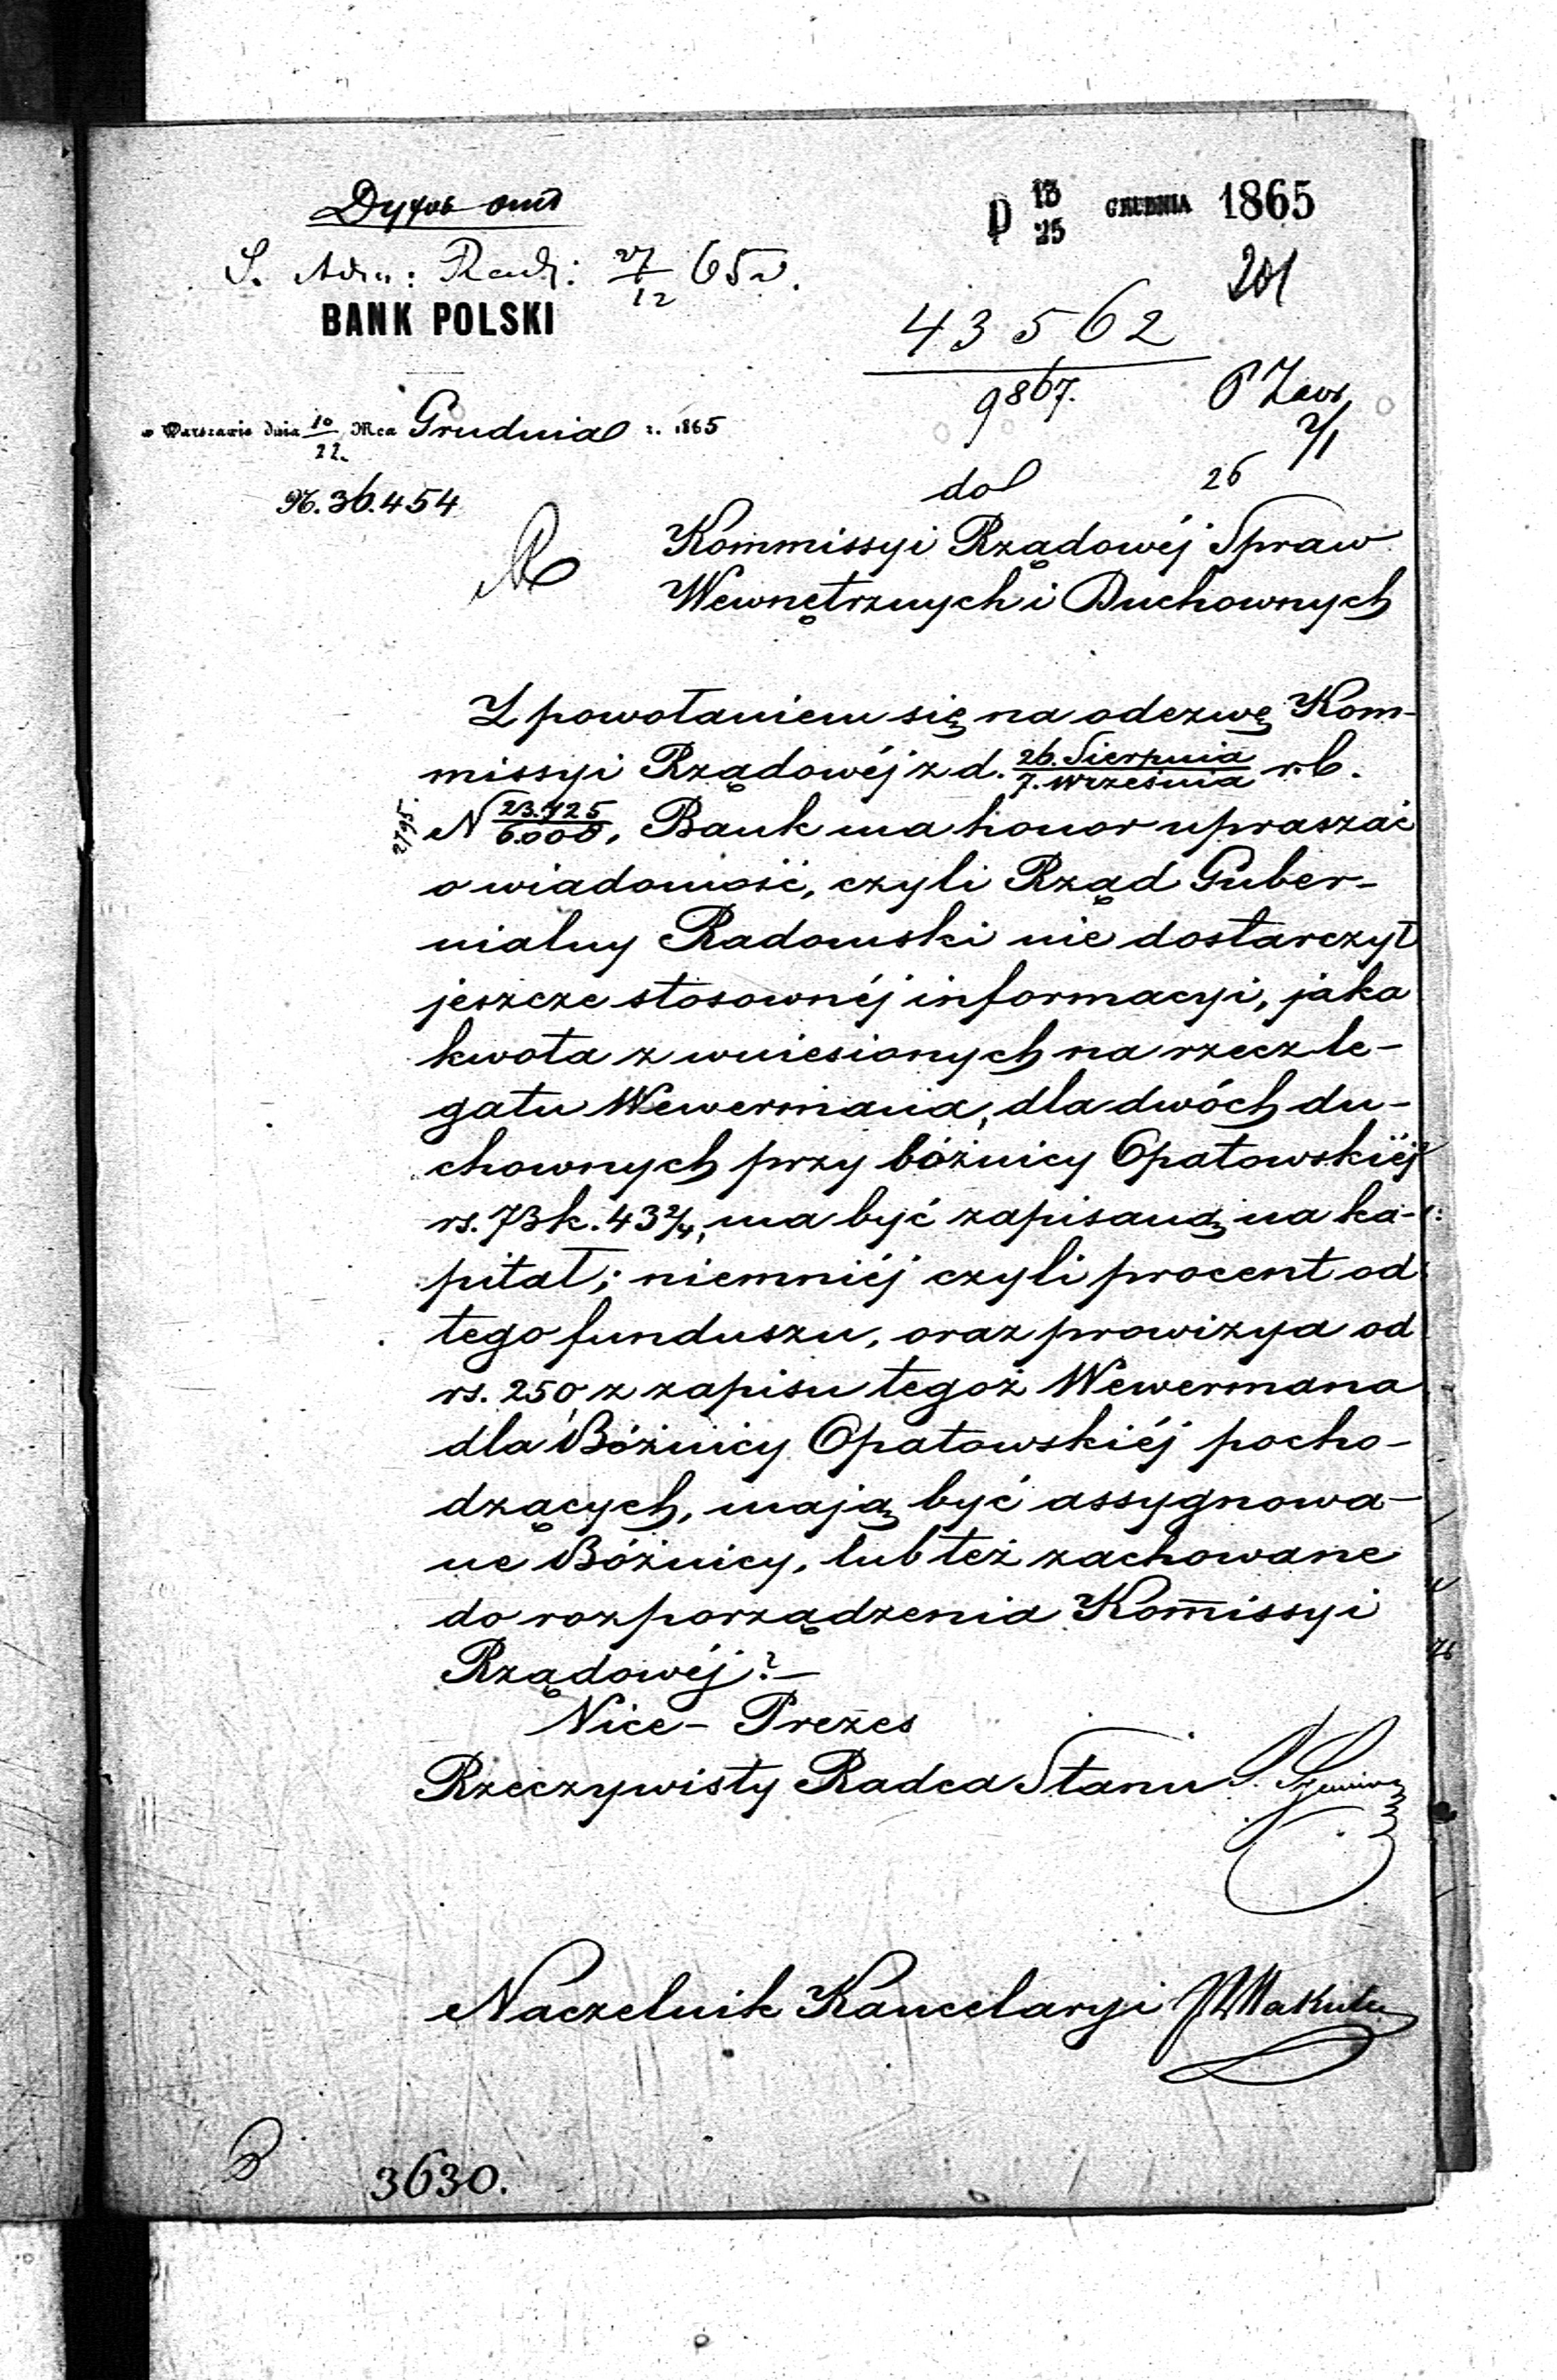 D 13/25 GRUDNIA 1865
S. Adm: Rad: 27/12 65 r.
201
BANK POLSKI
43562
9867.
w Warszawie dnia 10/22 Mca Grudnia r. 1865
2/1
26
N. 36.454
do
Kommissyi Rządowéj Spraw
Wewnętrznych i Duchownych
Z powołaniem się na odezwę Kom-
missyi Rządowéj z d. 26. Sierpnia/7. Września r.b.
N 23.725/6.000, Bank ma honor upraszać
o wiadomość, czyli Rząd Guber-
nialny Radomski nie dostarczył
jeszcze stosownéj informacyi, jaka
kwota z wniesionych na rzecz le-
gatu Wewermana, dla dwóch du-
chownych przy bóżnicy Opatowskiéj
rs. 73 k. 43 2/4, ma być zapisaną na ka-
pitał; niemniéj czyli procent od
tego funduszu, oraz prowizya od
rs. 250, z zapisu tegoż Wewermana
dla Bóżnicy Opatowskiéj pocho-
dzących, mają być assygnowa-
ne Bóżnicy, lub też zachowane
do rozporządzenia Kom̄issyi
Rządowéj?-
Vice-Prezes
Rzeczywisty Radca Stanu
Naczelnik Kancelaryi
3630.